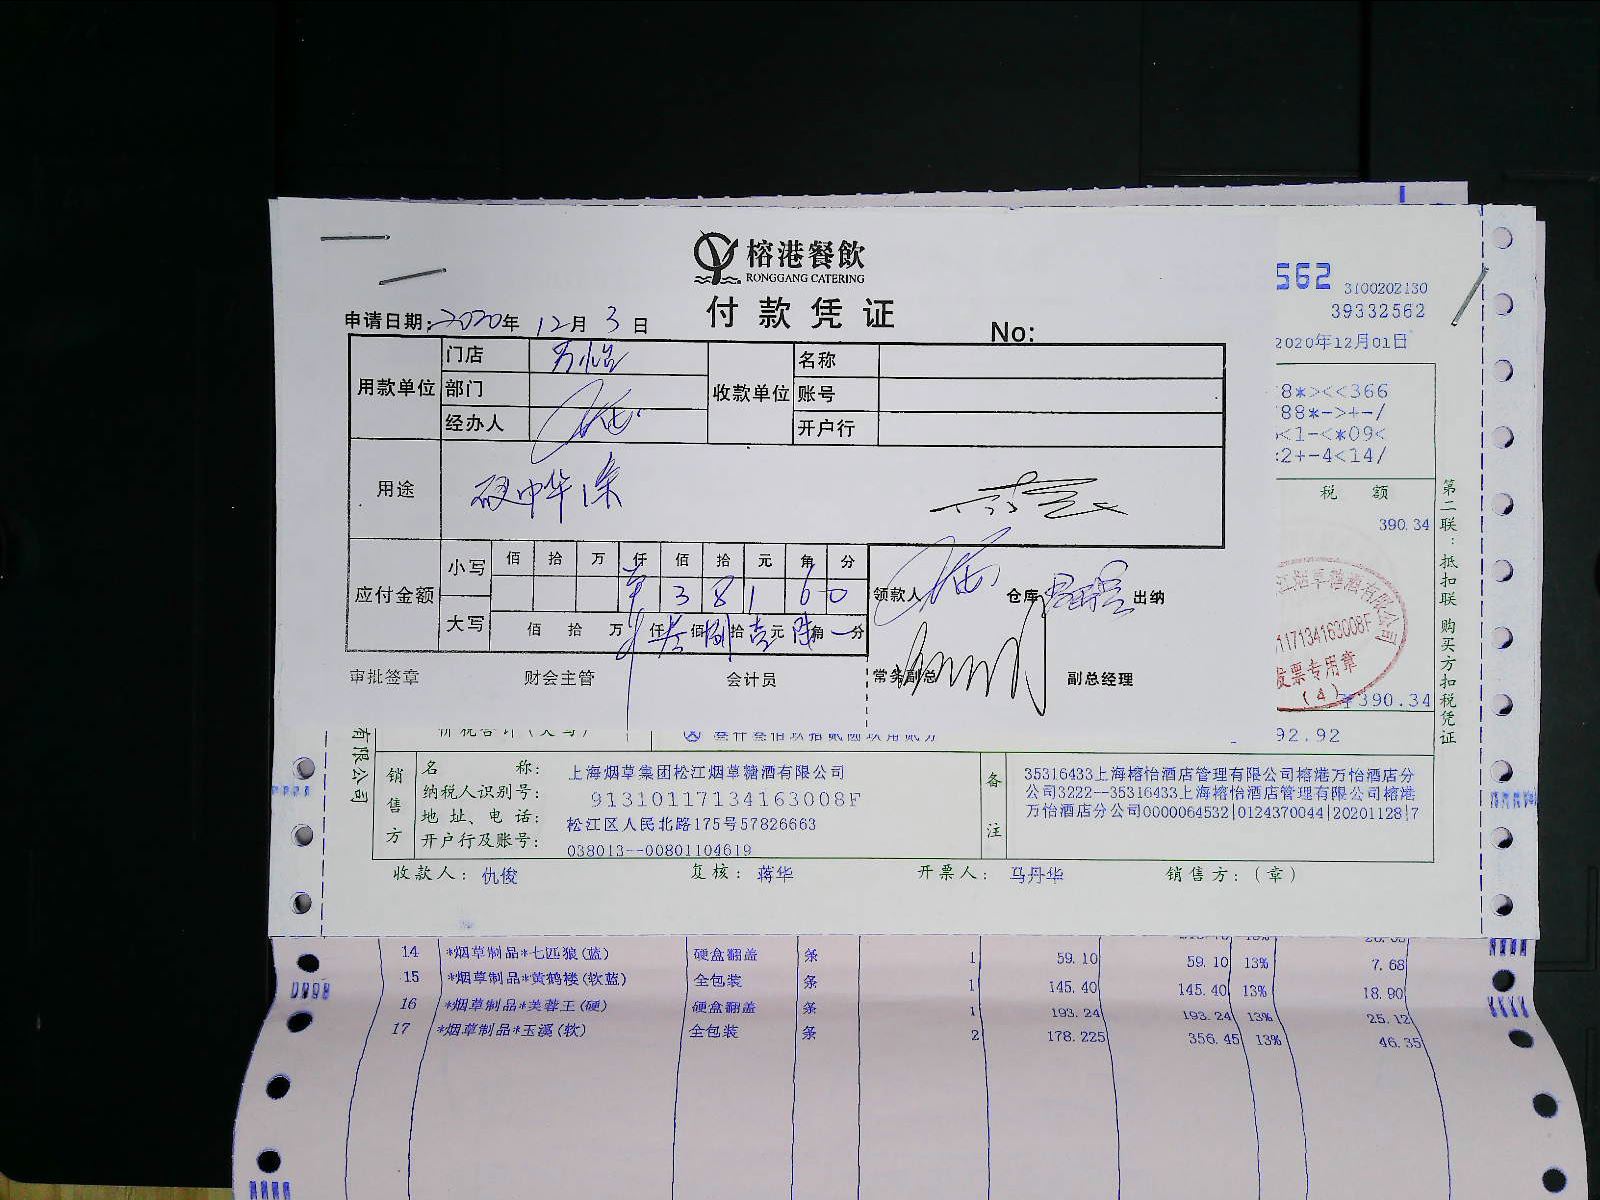 榕港餐飲
RONGGANG CATERING
付款凭证
申请日期: 2020年 12月 3日
No:
用款单位 门店 万怡
部门
经办人
收款单位 名称
账号
开户行
用途 硬中华1条
应付金额 小写 佰 拾 万 仟 佰 拾 元 角 分
3 8 1 6 0
大写 佰 拾 万 仟 叁佰 捌拾 壹元 陆角 分
领款人 仓库 出纳
审批签章 财会主管 会计员 常务副总 副总经理
562 3100202130
39332562
2020年12月01日
8*><<366
88*->+-/
<1-<*09<
2+-4<14/
税 额
390.34
第二联：抵扣联 购买方扣税凭证
117134163008F
发票专用章
(4)
¥390.34
92.92
有限公司
销售方
名 称： 上海烟草集团松江烟草糖酒有限公司
纳税人识别号： 91310117134163008F
地 址、电 话： 松江区人民北路175号57826663
开户行及账号： 038013--00801104619
备注
35316433上海榕怡酒店管理有限公司榕港万怡酒店分
公司3222--35316433上海榕怡酒店管理有限公司榕港
万怡酒店分公司0000064532|0124370044|20201128|7
收款人： 仇俊 复核： 蒋华 开票人： 马丹华 销售方：(章)
14 *烟草制品*七匹狼(蓝) 硬盒翻盖 条 1 59.10 59.10 13% 7.68
15 *烟草制品*黄鹤楼(软蓝) 全包装 条 1 145.40 145.40 13% 18.90
16 *烟草制品*芙蓉王(硬) 硬盒翻盖 条 1 193.24 193.24 13% 25.12
17 *烟草制品*玉溪(软) 全包装 条 2 178.225 356.45 13% 46.35